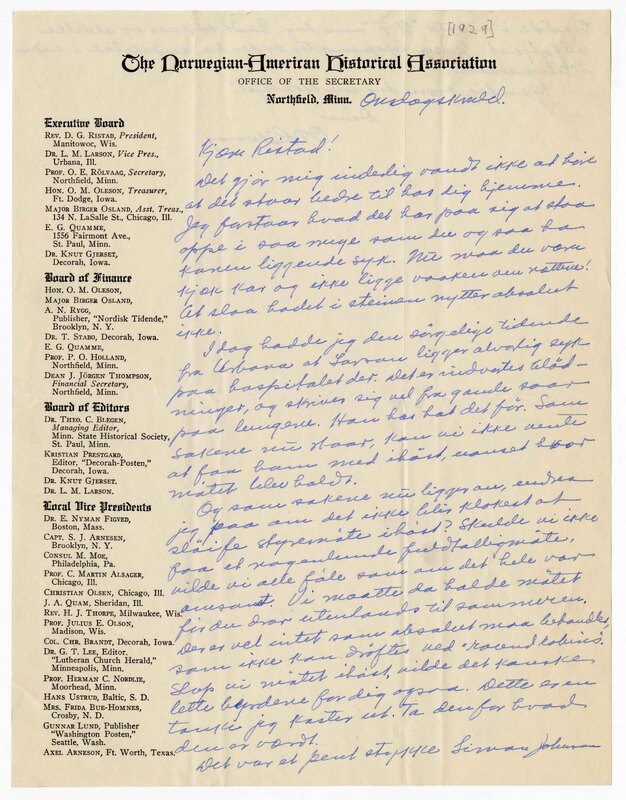 [1929]
The Norwegian-American Historical Association
OFFICE OF THE SECRETARY
Northfield, Minn. Onsdagskveld.
Executive Board
REV. D. G. RISTAD, President,
Manitowoc, Wis.
DR. L. M. LARSON, Vice Pres.,
Urbana, Ill.
PROF. O. E. RÖLVAAG, Secretary,
Northfield, Minn.
HON. O. M. OLESON, Treasurer,
Ft. Dodge, Iowa.
MAJOR BIRGER OSLAND, Asst. Treas.,
134 N. LaSalle St., Chicago, Ill.
E. G. QUAMME,
1556 Fairmont Ave.,
St. Paul, Minn.
DR. KNUT GJERSET,
Decorah, Iowa.
Board of Finance
HON. O. M. OLESON,
MAJOR BIRGER OSLAND,
A. N. RYGG,
Publisher, "Nordisk Tidende,"
Brooklyn, N. Y.
DR. T. STABO, Decorah, Iowa.
E. G. QUAMME,
PROF. P. O. HOLLAND,
Northfield, Minn.
DEAN J. JÖRGEN THOMPSON,
Financial Secretary,
Northfield, Minn.
Board of Editors
DR. THEO. C. BLEGEN,
Managing Editor,
Minn. State Historical Society,
St. Paul, Minn.
KRISTIAN PRESTGARD,
Editor, "Decorah-Posten,"
Decorah, Iowa.
DR. KNUT GJERSET.
DR. L. M. LARSON.
Local Vice Presidents
DR. E. NYMAN FIGVED,
Boston, Mass.
CAPT. S. J. ARNESEN,
Brooklyn, N. Y.
CONSUL M. MOE,
Philadelphia, Pa.
PROF. C. MARTIN ALSAGER,
Chicago, Ill.
CHRISTIAN OLSEN, Chicago, Ill.
J. A. QUAM, Sheridan, Ill.
REV. H. J. THORPE, Milwaukee, Wis.
PROF. JULIUS E. OLSON,
Madison, Wis.
COL. CHR. BRANDT, Decorah, Iowa.
DR. G. T. LEE, Editor,
"Lutheran Church Herald,"
Minneapolis, Minn.
PROF. HERMAN C. NORDLIE,
Moorhead, Minn.
HANS USTRUD, Baltic, S. D.
MRS. FRIDA BUE-HOMNES,
Crosby, N. D.
GUNNAR LUND, Publisher
"Washington Posten,"
Seattle, Wash.
AXEL ARNESON, Ft. Worth, Texas.
Kjære Ristad!
Det gjør mig inderlig vondt ikke at høre
at det staar bedre til hos dig hjemme.
Jeg forstaar hvad det har paa sig at staa
oppe i saa meget som du og saa ha
konen liggende syk. Nu maa du være
kjæk kar og ikke ligge vaaken om nættene!
At slaa hodet i steinen nytter absolut
ikke.
I dag hadde jeg den sørgelige tidende
fra Urbana at Larson ligger alvorlig syk
paa hospitalet der. Det er indvortes blød-
ninger, og skriver sig vel fra gamle saar
paa lungene. Han har hat det før. Som
sakene nu staar, kan vi ikke vente
at faa ham med ihøst, uanset hvor
møtet blev holdt.
Og som sakene nu ligger an, undres
jeg paa om det ikke blir klokest at
sløife styremøte ihøst? Skulde vi ikke
faa et nogenlunde fuldtallig møte,
vilde vi alle føle som om det hele var
omsonst. Vi maatte da holde møtet
før du drar utenlands til sommeren.
Der er vel intet som absolut maa behandles
som ikke kan drøftes ved "round robins".
Slap vi møtet ihøst, vilde det kanske
lette byrdene for dig ogsaa. Dette er en
tanke jeg kaster ut. Ta den for hvad
den er værdt.
Det var et pent stykke Simon Johnson